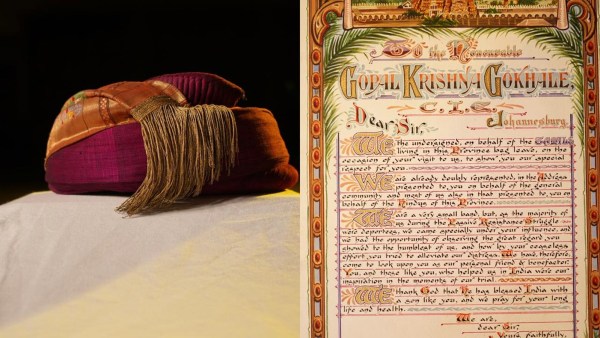 To the Honourable
GOPAL KRISHNA GOKHALE,
C.I.E.
Johannesburg
Dear Sir,
We the undersigned, on behalf of the
living in this Province beg leave, on the
occasion of your visit to us, to show you our special
respect for you
We are already doubly represented, in the Address
presented to you on behalf of the general
community and most of us also in that presented to you on
behalf of the Hindus of this Province.
We are a very small band, but, as the majority of
us during the Passive Resistance Struggle
were deportees, we came specially under your influence, and
we had the opportunity of observing the great regard you
showed to the humblest of us, and how by your ceaseless
effort, you tried to alleviate our distress. We have, therefore,
come to look upon you as our personal friend & benefactor.
You, and those like you, who helped us in India were our
inspiration in the moments of our trial.
We thank God that He has blessed India with
a son like you, and we pray for your long
life and health.
We are,
dear Sir,
Yours faithfully,